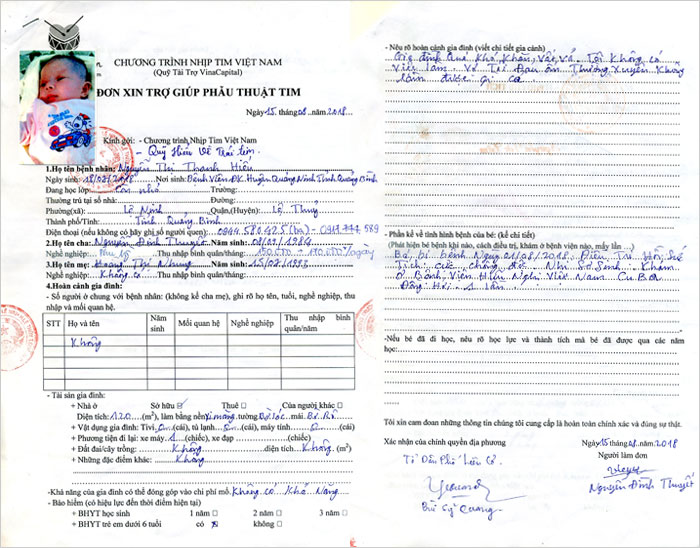 CHƯƠNG TRÌNH NHỊP TIM VIỆT NAM
(Quỹ Tài Trợ VinaCapital)
ĐƠN XIN TRỢ GIÚP PHẪU THUẬT TIM
Ngày 15 tháng 08 năm 2018
Kính gửi: - Chương trình Nhịp Tim Việt Nam
- Quỹ Hiểu Về Trái Tim.
1.Họ tên bệnh nhân: Nguyễn Thị Thanh Hiền
Ngày sinh: 18/07/2018 Nơi sinh: Bệnh Viện ĐK Huyện Quảng Ninh Tỉnh Quảng Bình
Đang học lớp: Còn nhỏ Trường:
Thường trú tại số nhà: Đường:
Phường(xã): Lệ Ninh Quận,(Huyện): Lệ Thuỷ
Thành phố/Tỉnh: Tỉnh Quảng Bình
Điện thoại (nếu không có hãy ghi số người quen): 0944.580.425 (ba) -
2.Họ tên cha: Nguyễn Đình Thuyết Năm sinh: 08/09/1984
Nghề nghiệp: Phụ lý Thu nhập bình quân/tháng: 150.000 - 170.000/ngày
3.Họ tên mẹ: Hoàng Thị Nhung Năm sinh: 15/07/1993
Nghề nghiệp: Không có Thu nhập bình quân/tháng:
4.Hoàn cảnh gia đình:
- Số người ở chung với bệnh nhân: (không kể cha mẹ), ghi rõ họ tên, tuổi, nghề nghiệp, thu
nhập và mối quan hệ.
STT Họ và tên Năm sinh Mối quan hệ Nghề nghiệp Thu nhập bình quân/năm
Không
- Tài sản gia đình:
+ Nhà ở Sở hữu Thuê Của người khác
Diện tích: 120 (m²), làm bằng nền xi măng, tường Bờ lốc, mái. Bờ Rô
+ Vật dụng gia đình: Tivi 0 (cái), tủ lạnh 0 (cái), máy tính 0 (cái)
+ Phương tiện đi lại: xe máy 1 (chiếc), xe đạp (chiếc)
+ Đất đai/cây trồng: Không diện tích Không (m²)
+ Những đặc điểm khác: Không
-Khả năng của gia đình có thể đóng góp vào chi phí mổ. Không có Khả Năng
- Bảo hiểm (có hiệu lực đến thời điểm hiện tại)
+ BHYT học sinh 1 năm 2 năm 3 năm
+ BHYT trẻ em dưới 6 tuổi có không
- Nêu rõ hoàn cảnh gia đình (viết chi tiết gia cảnh)
Gia đình Quá Khó Khăn, Vất Vả. Tôi Không có
Việc làm. Vợ Tôi Đau ốm Thường Xuyên Không
làm được gì cả
- Phần kể về tình hình bệnh của bé: (kể chi tiết)
(Phát hiện bé bệnh khi nào, cách điều trị, khám ở bệnh viện nào, mấy lần ...)
Bé bị bệnh Ngày 01/08/2018. Điều Trị Hồi Sức
Tích cực chống độc Nhi Sơ Sinh. Khám
ở Bệnh Viện Hữu Nghị Việt Nam Cu Ba
Đồng Hới 1 lần
-Nếu bé đã đi học, nêu rõ học lực và thành tích mà bé đã được qua các năm
học:
Tôi xin cam đoan những thông tin chúng tôi cung cấp là hoàn toàn chính xác và đúng sự thật.
Xác nhận của chính quyền địa phương Ngày 15 tháng 08 năm 2018
Người làm đơn
Bùi Sỹ Quang
Nguyễn Đình Thuyết